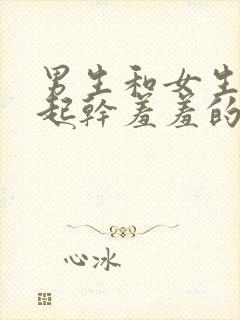 男生和女生
起幹羞羞的
心冰